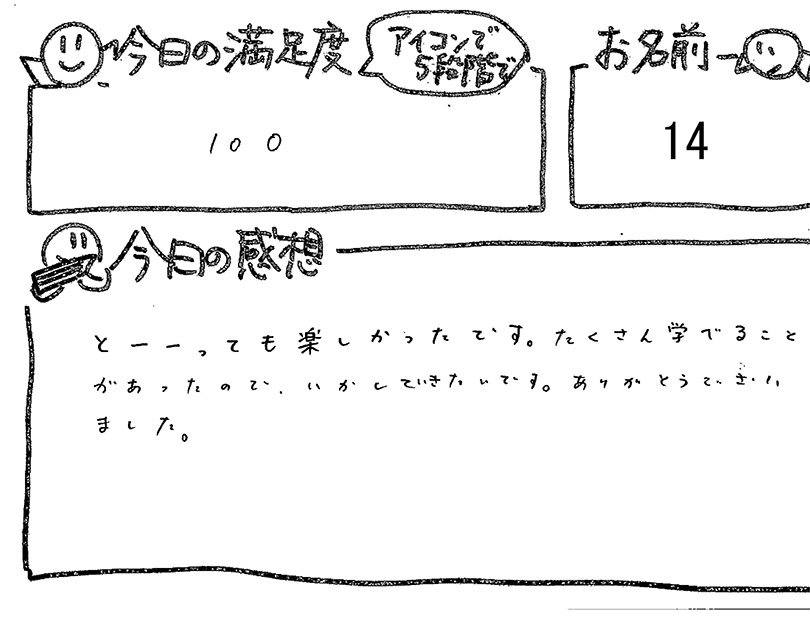 今日の満足度
アイコンで
5段階で
お名前
100
14
今日の感想
とーーっても楽しかったです。たくさん学べること
があったので、いかしていきたいです。ありがとうございい
ました。